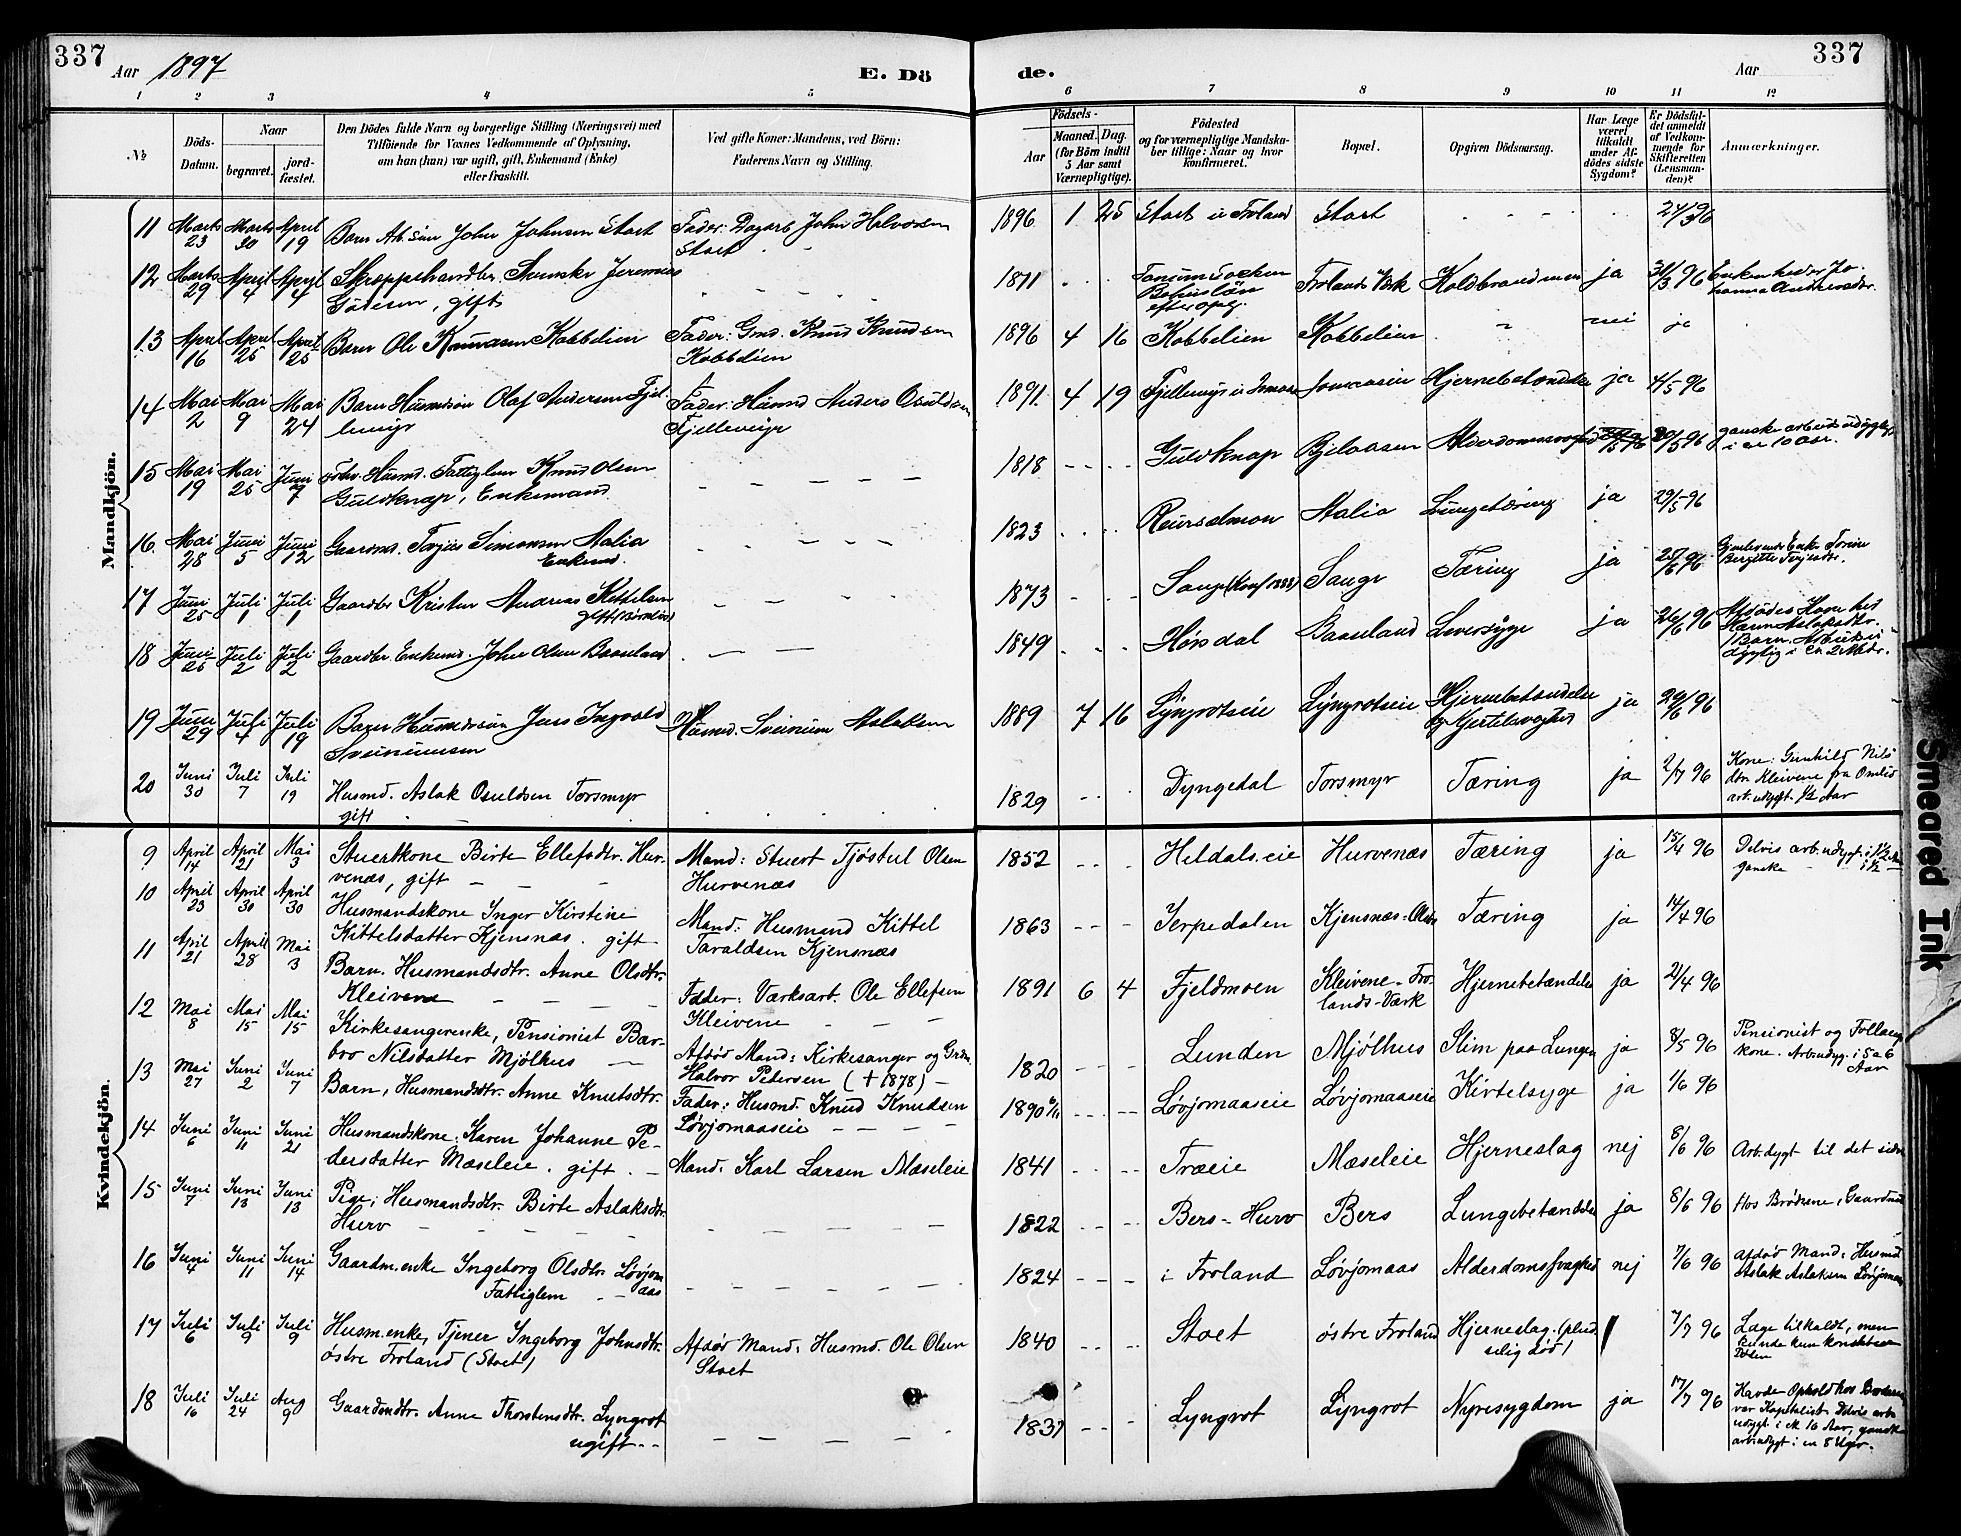 337
Aar 1897
E. Dö
de.
Aar
337
1 2 3 4 5 6 7 8 9 10 11 12
№
Döds-Datum.
Naar
begravet.
jord-fæstet.
Den Dödes fulde Navn og borgerlige Stilling (Næringsvei) med
Tilföiende for Voxnes Vedkommende af Oplysning,
om han (hun) var ugift, gift, Enkemand (Enke)
eller fraskilt.
Ved gifte Koner: Mandens, ved Börn:
Faderens Navn og Stilling.
Födsels-
Aar
Maaned. Dag.
(for Börn indtil
5 Aar samt
Værnepligtige).
Födested
og for værnepligtige Mandska-
ber tillige: Naar og hvor
konfirmeret.
Bopæl.
Opgiven Dödsaarsag.
Har Læge
været
tilkaldt
under Af-
dödes sidste
Sygdom?
Er Dödsfal-
det anmeldt
af Vedkom-
mende for
Skifteretten
(Lensman-
den)?
Anmærkninger.
Mandkjön.
11 Marts 23 Marts 30 April 19 Barn John Johnsen Stoet Fader: Dagarb. John Halvorsen Stoet 1896 1 25 Stoet i Froland Stoet 24/3 96
12 Marts 29 April 4 April 4 Svenske Jeremias gift 1871 Bohuslän Frolands Værk Koldbrand ja 31/3 96
13 April 16 April 25 April 25 Barn Ole Knudsen Kobbelien Fader: Gmd. Knud Knudsen Kobbelien 1896 4 16 Kobbelien Kobbelien nei ja
14 Mai 2 Mai 9 Mai 24 Barn Husmdsön Olaf Andersen Fjel- Fader: Husmd Anders Osuldsen 1891 4 19 Hjernebetændelse ja 4/5 96
15 Mai 19 Mai 25 Juni 7 Husmd. Fattiglem Knud Olsen Guldknap, Enkemand 1818 Guldknap Alderdomssvaghed 20/5 96 ganske arbeidsudygtig i ca 10 Aar.
16. Mai 28 Juni 5 Juni 12 Gaardmd. Terjus Simonsen Aalia Enkemd. 1823 Aalia Lungetæring ja 29/5 96
17 Juni 25 Juli 1 Juli 1 Gaardbr Kristen Andreas Kittelsen gift 1873 Sange (Konf 1888) Sange Tæring ja 25/6 96
18 Juni 25 Juli 2 Juli 2 Gaardbr. Enkemd. John Olsen Baaseland 1849 Baaseland Leversyge ja 26/6 96
19 Juni 29 Juli 4 Juli 19 Barn Husmdssön Jens Ingvald Sveinunsen Husmd. Sveinun Aslaksen 1889 7 16 Lyngrotseie Lyngrotseie Hjernebetændelse og Kjertelsvaghed ja 29/6 96
20 Juni 30 Juli 7 Juli 19 Husmd. Aslak Osuldsen Torsmyr gift 1829 Dyngedal Torsmyr Tæring ja 2/7 96 Kone: Gunhild Nils dtr. Kleivene fra Omlid arb. udygt. 1/2 Aar
Kvindekjön.
9 April 14 April 21 Mai 3 Stuertkone Birte Ellefsdtr. Hur-
venæs, gift Mand: Stuert Tjöstul Olsen
Hurvenæs 1852 Heldalseie Hurvenæs Tæring ja 15/4 96 Delvis arb.udygt.
ganske
10 April 23 April 30 April 30 Husmandskone Inger Kirstine
Kittelsdatter Kjensnæs. gift Mand: Husmand Kittel
Taraldsen Kjensnæs 1863 Jerpedalen Kjensnæs Tæring ja 14/4 96
11 April 21 April 28 Mai 3 Barn. Husmandsdtr. Anne Olsdtr.
Kleivene Fader: Værksarb. Ole Ellefsen
Kleivene 1891 6 4 Fjeldmoen Kleivene - Fro-
lands-Værk Hjernebetændelse ja 21/4 96
12 Mai 8 Mai 15 Mai 15 Kirkesangerenke, Pensionist Bar-
bro Nilsdatter Mjölhus Afdød Mand: Kirkesanger og Grdm.
Halvor Petersen († 1878) 1820 Lunden Mjølhus Slim paa Lungen ja 8/5 96 Pensionist og Follaugs-
kone. Arb.udyg. i 5 a 6
Aar
13 Mai 27 Juni 2 Juni 7 Barn, Husmandsdtr. Anne Knutsdtr. Fader: Husmd. Knud Knudsen
Løvjomaaseie 1890 Løvjomaaseie Løvjomaaseie Kirtelsyge ja 1/6 96
14 Juni 6 Juni 11 Juni 21 Husmandskone. Karen Johanne Pe-
dersdatter Mæseleie. gift. Mand: Karl Larsen Mæseleie 1841 Træeie Mæseleie Hjerneslag nej 8/6 96 Arb.dygt til det sidste
15 Juni 7 Juni 13 Juni 13 Pige; Husmandsdtr. Birte Aslaksdtr.
Hurv 1822 Bers - Hurv Bers Lungebetændelse ja 8/6 96 Hos Brødrene, Gaardmd
16 Juni 4 Juni 11 Juni 14 Gaardm.enke Ingeborg Olsdtr. Løvjom
aas
Fattiglem 1824 i Froland Løvjomaas Alderdomssvaghed nej 7/6 96 Afdød Mand: Husmd
Aslak Aslaksen Løvjomaas
17 Juli 6 Juli 9 Juli 9 Husm.enke, Tjener Ingeborg Johnsdtr.
østre Froland (Stoet) Afdød Mand: Husmd. Ole Olsen
Stoet 1840 Stoet østre Froland Hjerneslag. (plud-
selig Død) 7/7 96 Læge tilkaldt, men
kunde kun konstatere
Døden
18 Juli 16 Juli 24 Aug 9 Gaardmdtr. Anne Thorstensdtr. Lyngrot
ugift 1837 Lyngrot Lyngrot Nyresygdom ja 17/7 96 Havde Ophold hos Broderen
var Kapitalist. Delvis arb.
udygt. i ca 16 Aar, ganske
arb.udygt i ca 8 Uger.
Smeared Ink